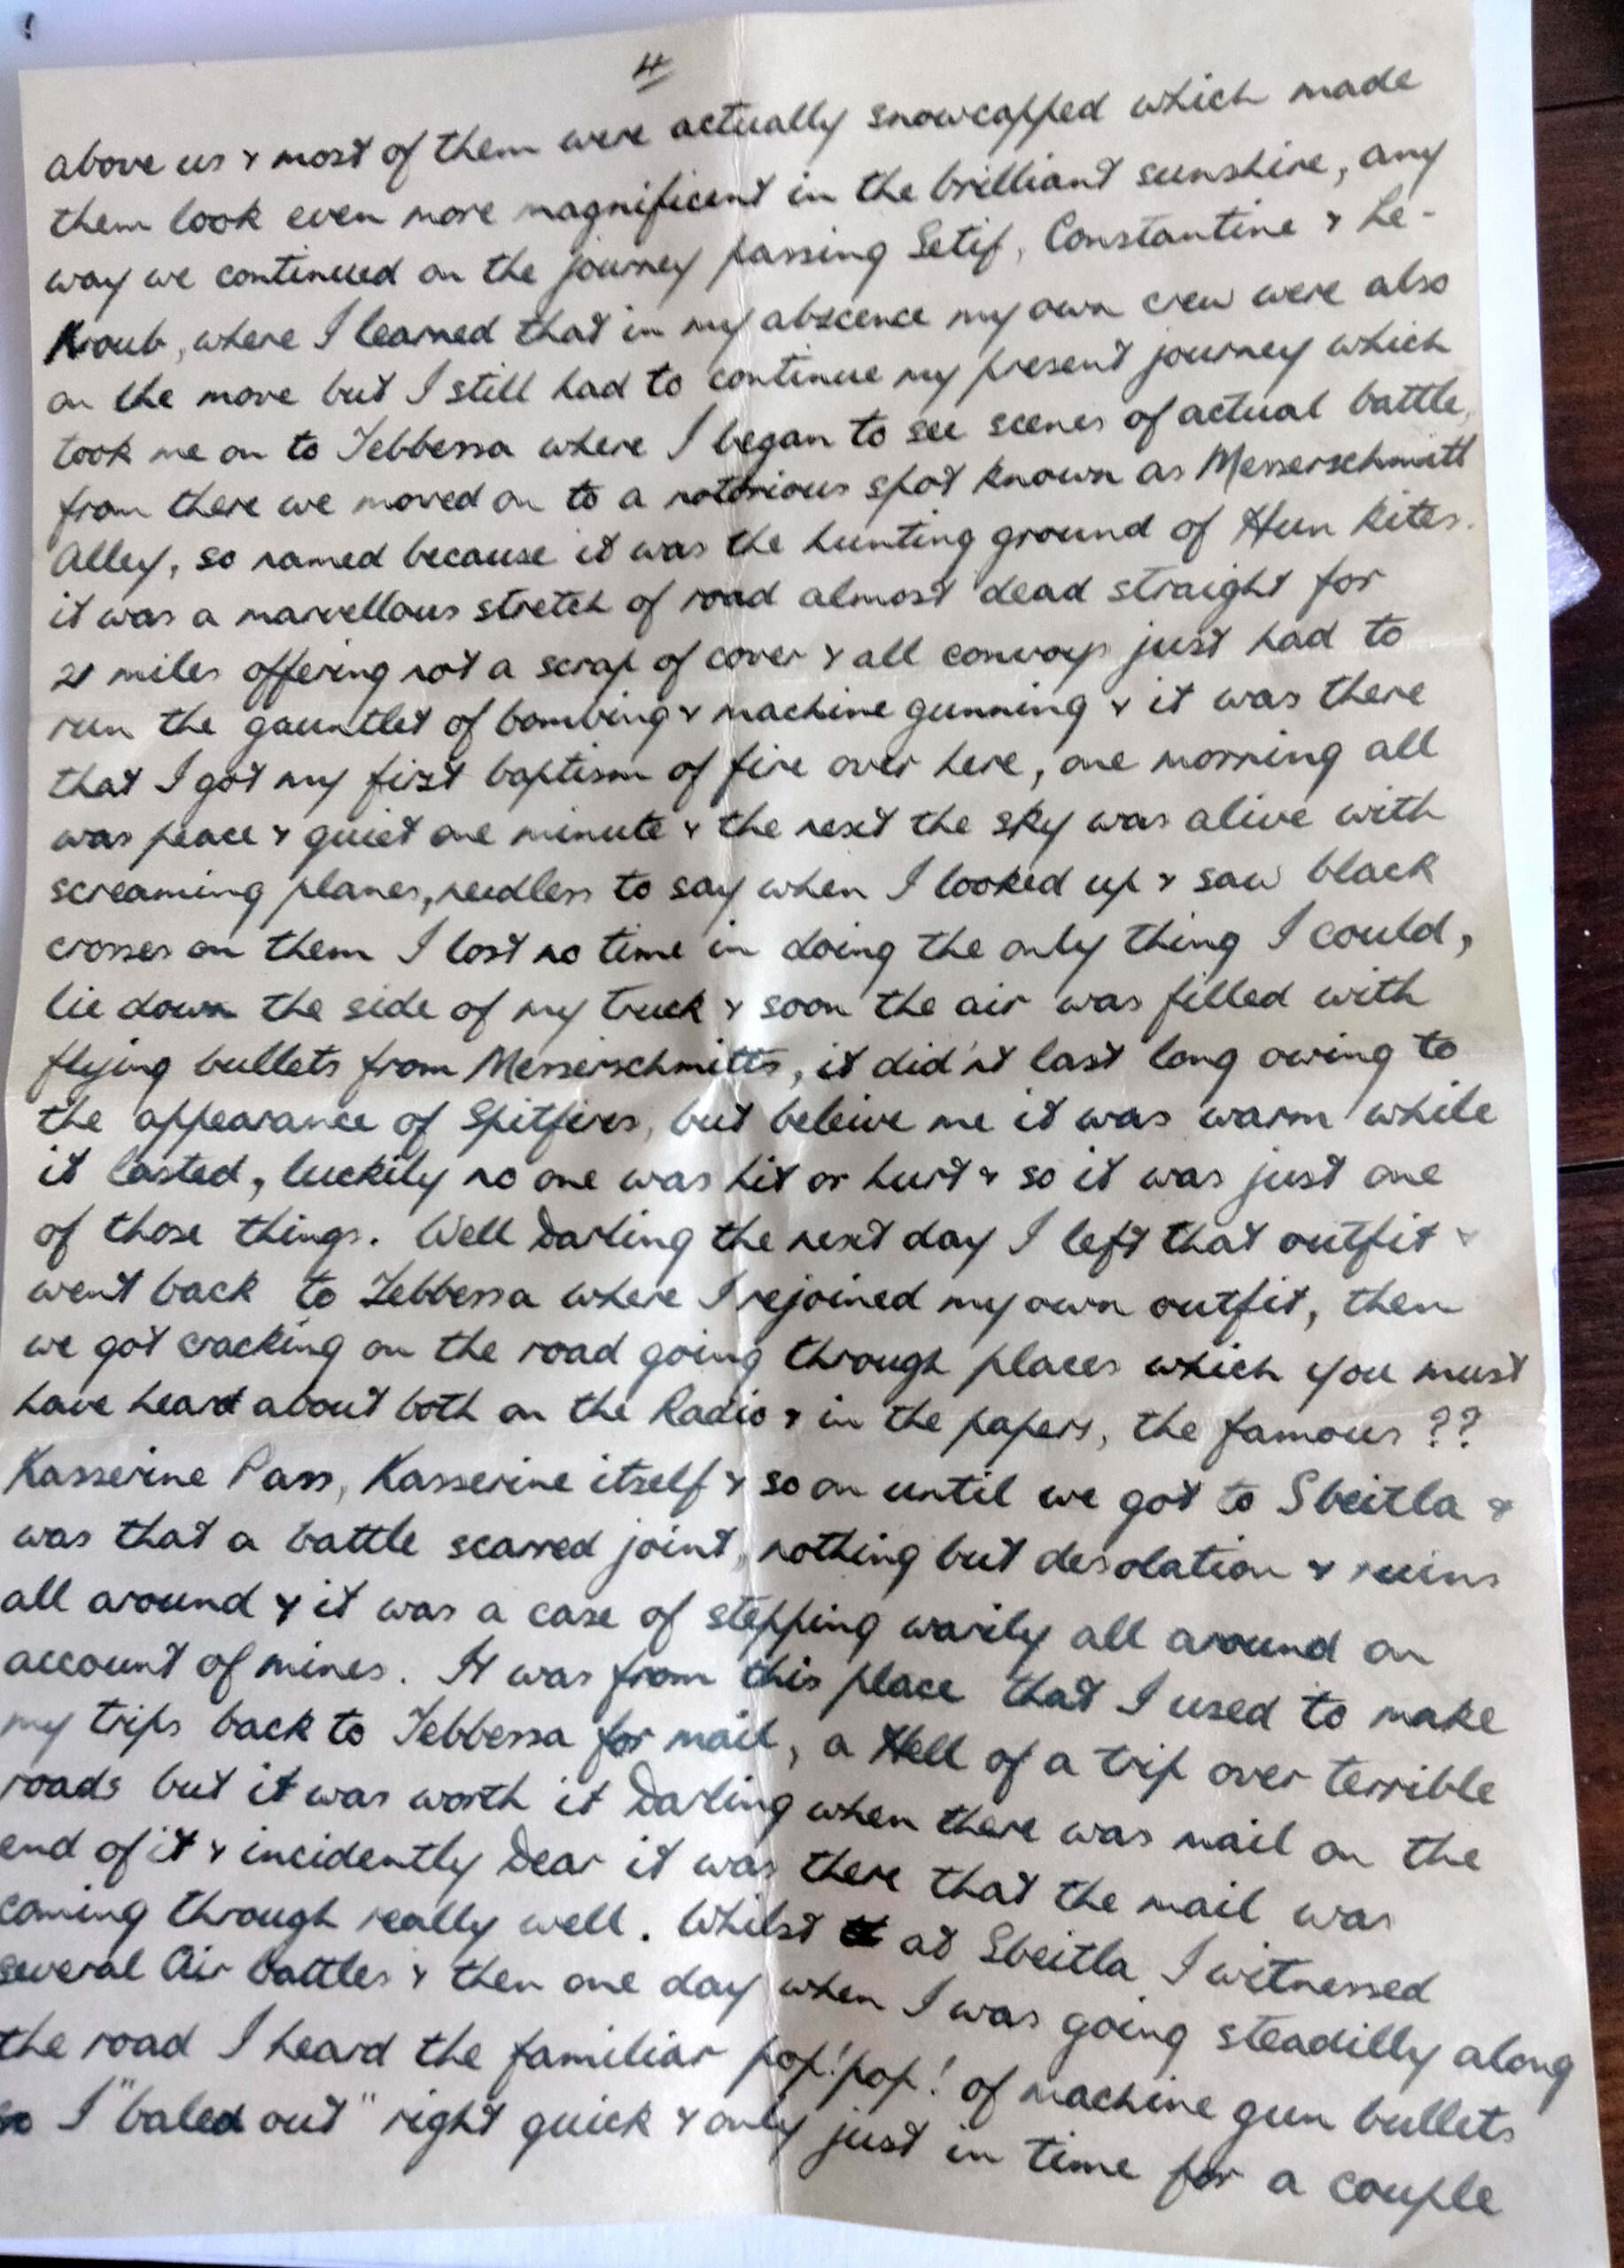 4
above us & most of them were actually snowcapped which made
them look even more magnificent in the brilliant sunshine, any
way we continued on the journey passing Setif, Constantine & Le-
Kroub, where I learned that in my abscence my own crew were also
on the move but I still had to continue my present journey which
took me on to Tebbessa where I began to see scenes of actual battle,
from there we moved on to a notorious spot known as Messerschmitt
Alley, so named because it was the hunting ground of Hun kites.
it was a marvellous stretch of road almost dead straight for
21 miles offering not a scrap of cover & all convoys just had to
run the gauntlet of bombing & machine gunning & it was there
that I got my first baptism of fire over here, one morning all
was peace & quiet one minute & the next the sky was alive with
screaming planes, needless to say when I looked up & saw black
crosses on them I lost no time in doing the only thing I could,
lie down the side of my truck & soon the air was filled with
flying bullets from Messerschmitts, it did'nt last long owing to
the appearance of Spitfires, but beleive me it was warm while
it lasted, luckily no one was hit or hurt & so it was just one
of those things. Well Darling the next day I left that outfit &
went back to Tebbessa where I rejoined my own outfit, then
we got cracking on the road going through places which you must
have heard about both on the Radio & in the papers, the famous ??
Kasserine Pass, Kasserine itself & so on until we got to Sbeitla &
was that a battle scarred joint, nothing but desolation & ruins
all around & it was a case of stepping warily all around on
account of mines. It was from this place that I used to make
my trips back to Tebbessa for mail, a Hell of a trip over terrible
roads but it was worth it Darling when there was mail on the
end of it & incidently Dear it was there that the mail was
coming through really well. Whilst at Sbeitla I witnessed
several Air battles & then one day when I was going steadilly along
the road I heard the familiar pop! pop! of machine gun bullets
so I "baled out" right quick & only just in time for a couple